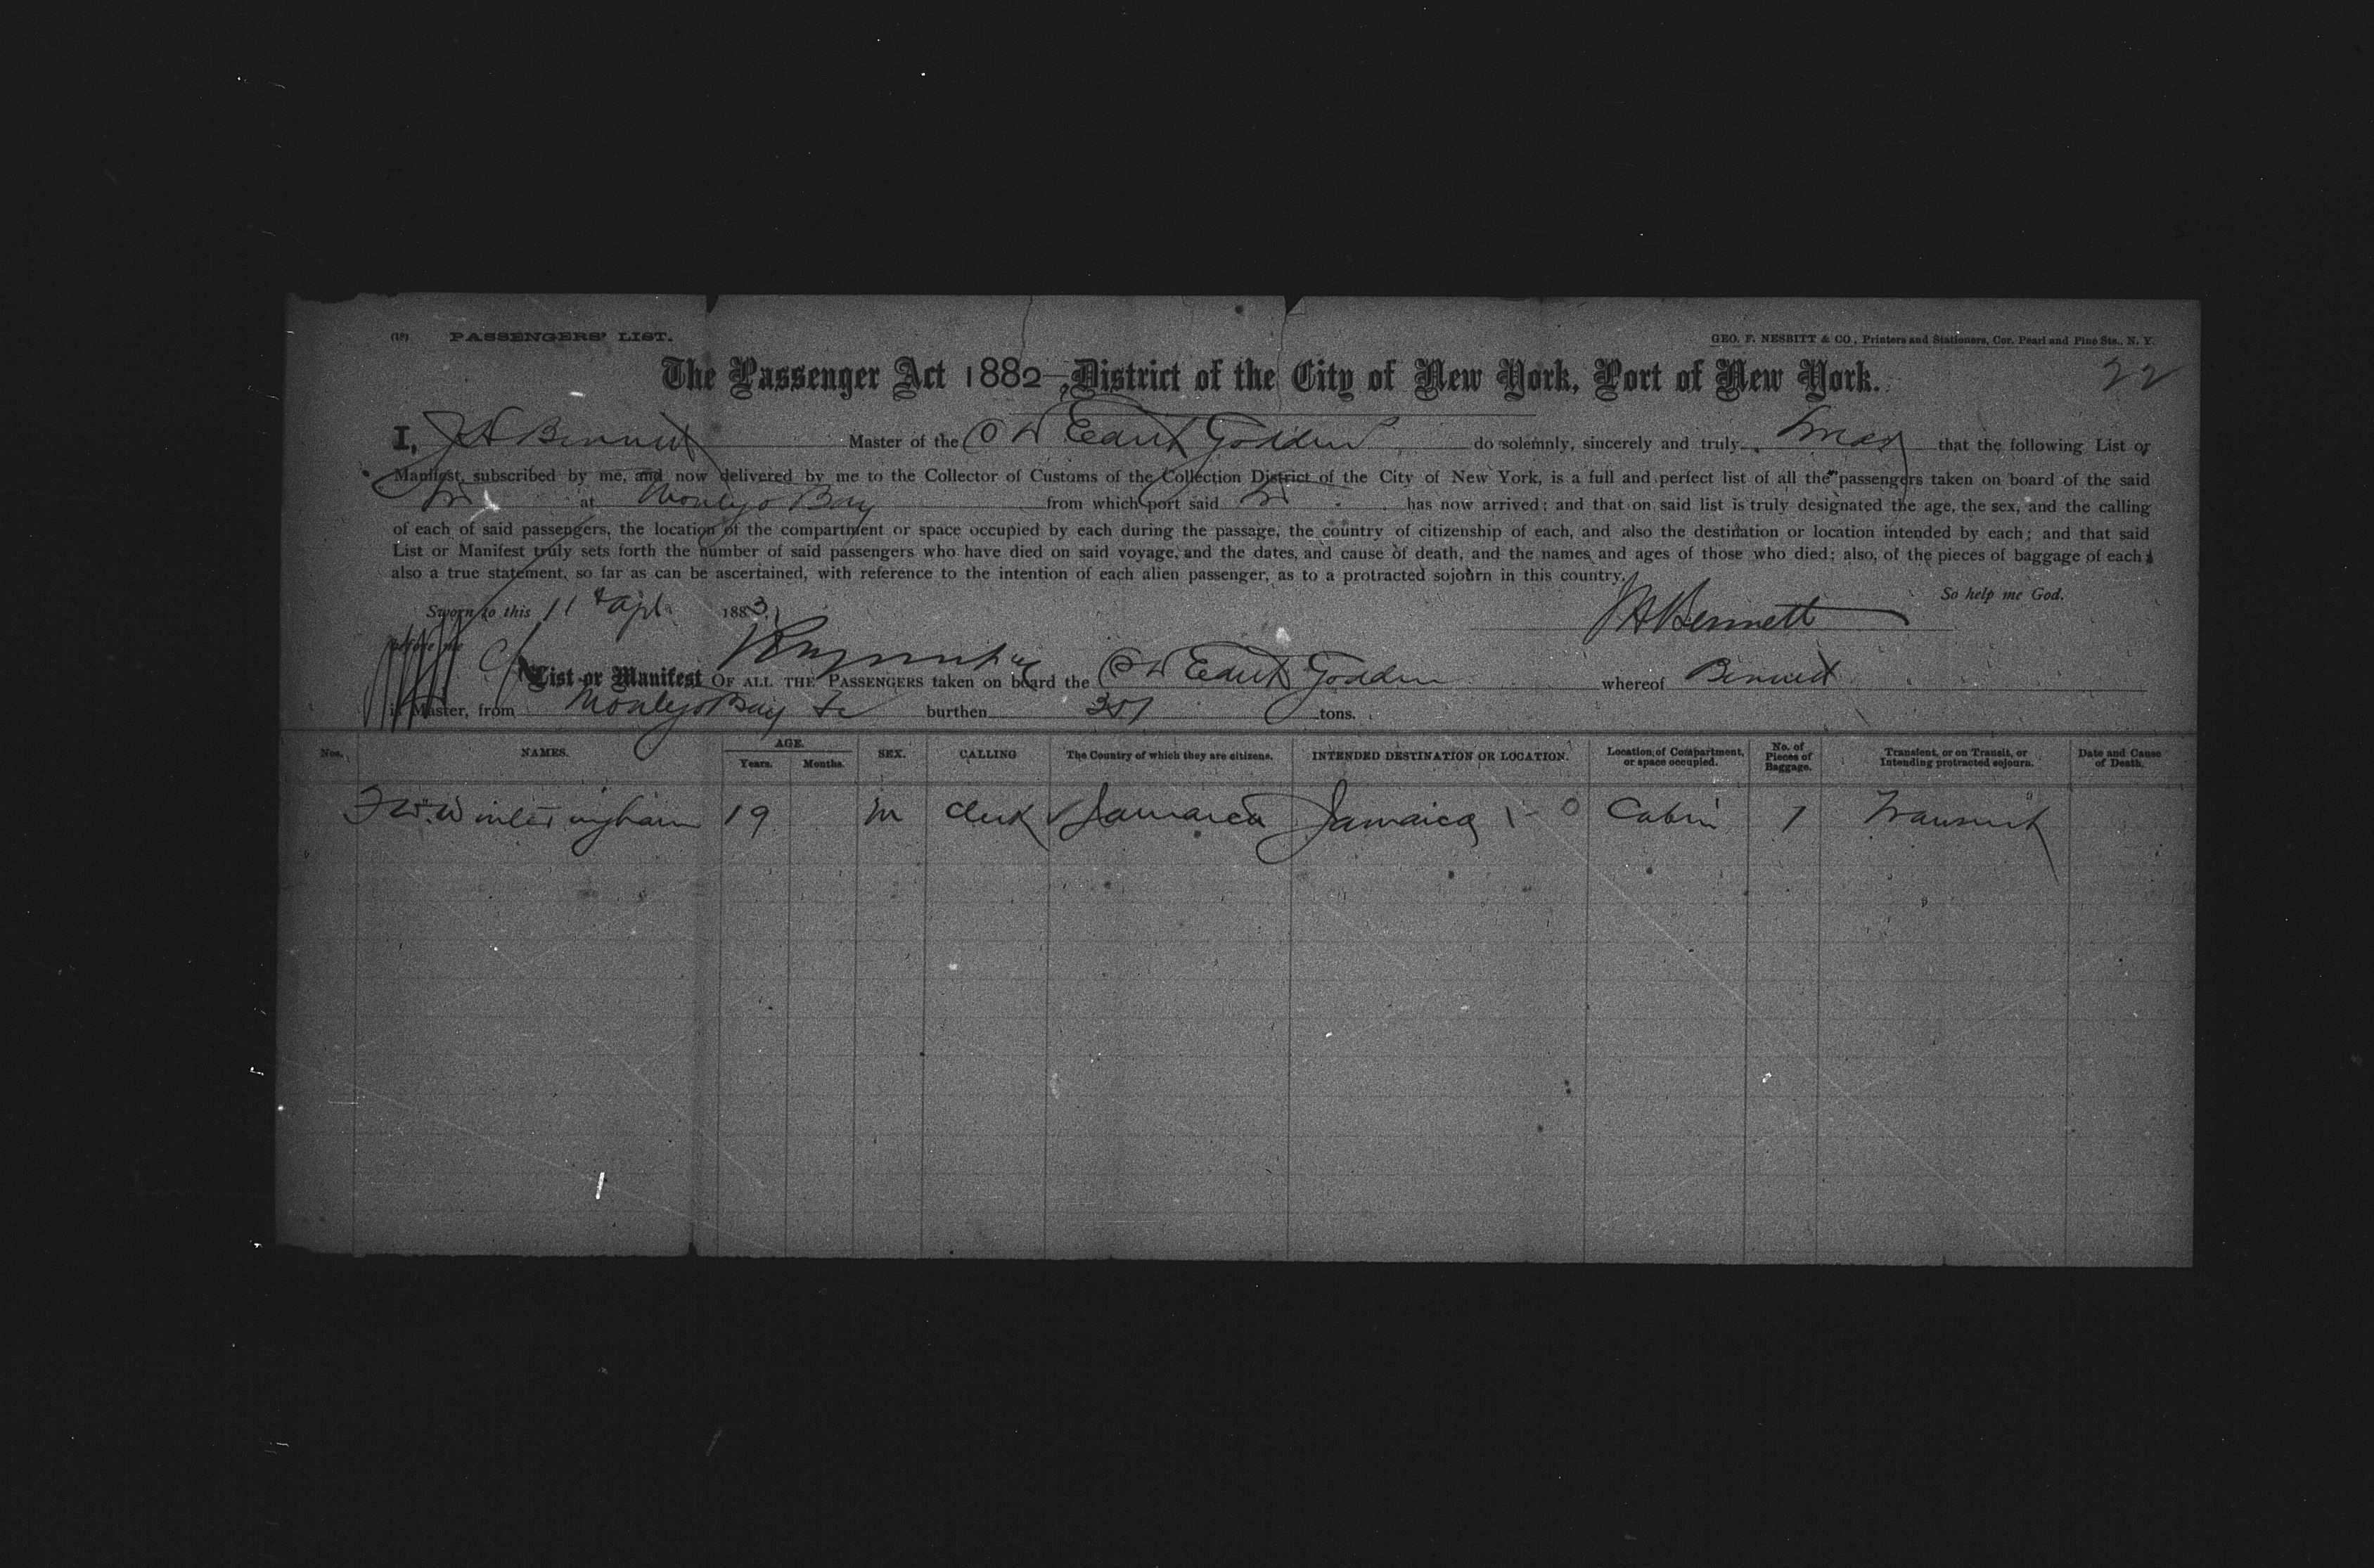 (18) PASSENGERS' LIST.
GEO. F. NESBITT & CO., Printers and Stationers, Cor. Pearl and Pine Sts., N. Y.
The Passenger Act 1882—District of the City of New York, Port of New York.
22
I, J H Bennett Master of the Edith Godden do solemnly, sincerely and truly swear that the following List or
Manifest, subscribed by me, and now delivered by me to the Collector of Customs of the Collection District of the City of New York, is a full and perfect list of all the passengers taken on board of the said
at Montego Bay from which port said has now arrived; and that on said list is truly designated the age, the sex, and the calling
of each of said passengers, the location of the compartment or space occupied by each during the passage, the country of citizenship of each, and also the destination or location intended by each; and that said
List or Manifest truly sets forth the number of said passengers who have died on said voyage, and the dates, and cause of death, and the names and ages of those who died; also, of the pieces of baggage of each;
also a true statement, so far as can be ascertained, with reference to the intention of each alien passenger, as to a protracted sojourn in this country.
So help me God.
Sworn to this 11 Apl 1883
J H Bennett
before me
List or Manifest OF ALL THE PASSENGERS taken on board the Edith Godden whereof Bennett
is Master, from Montego Bay Ja burthen 351 tons.
Nos. NAMES. AGE. Years. Months. SEX. CALLING The Country of which they are citizens. INTENDED DESTINATION OR LOCATION. Location of Compartment, or space occupied. No. of Pieces of Baggage. Transient, or on Transit, or Intending protracted sojourn. Date and Cause of Death.
F W. Winteringham 19 m Clerk Jamaica Jamaica Cabin 1 Transit